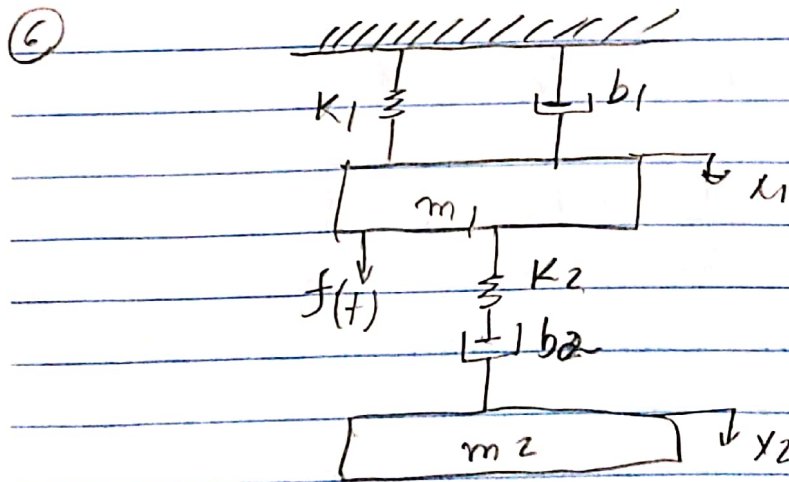 6
K1
b1
m1
x1
f(t)
K2
b2
m2
x2